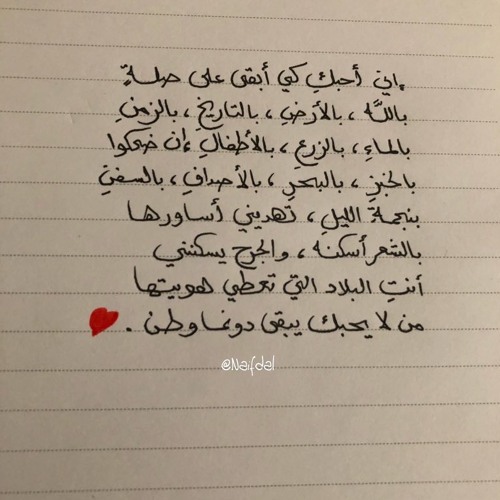 إني أحبكِ كي أبقى على صلةٍ
باللَّه ، بالأرضِ ، بالتاريخِ ، بالزمنِ
بالماءِ ، بالزرعِ ، بالأطفالِ إن ضحكوا
بالخبزِ ، بالبحرِ ، بالأصدافِ ، بالسفنِ
بنجمةِ الليلِ ، تهديني أساورها
بالشعر أسكنه ، والجرح يسكنني
أنتِ البلاد التي تعطي هويتها
من لا يحبك يبقى دونما وطن .
@Naifdal